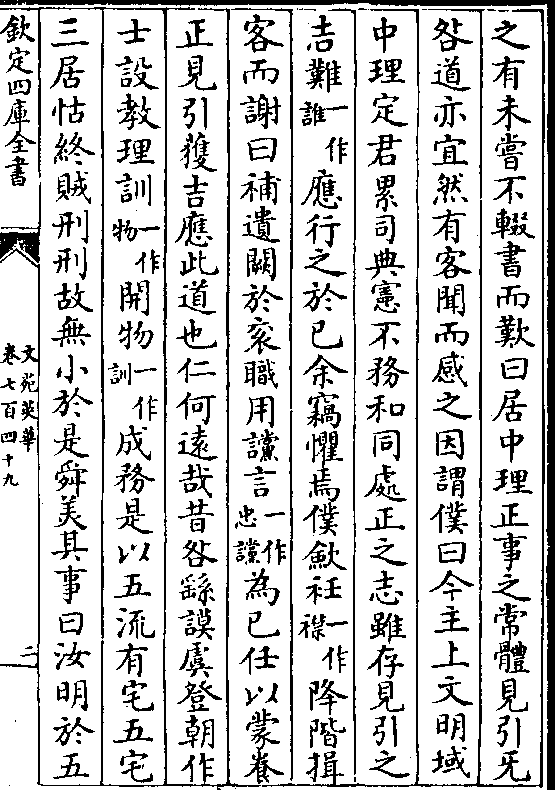 之有未嘗不輟書而歎曰居中理正事之常體見引旡
咎道亦宜然有客聞而感之因謂僕曰今主上文明域
中理定君累司典憲不務和同處正之志雖存見引之
吉難一作誰應行之於已余竊懼焉僕歛衽一作襟降階揖
客而謝曰補遺闕於衮職用讜言一作忠讜為已任以蒙養
正見引獲吉應此道也仁何遠哉昔咎繇謨虞登朝作
士設教理訓一作物開物一作訓成務是以五流有宅五宅
三居怙終賊刑刑故無小於是舜美其事曰汝明於五
欽定四庫全書
文苑英華
卷七百四十九
二